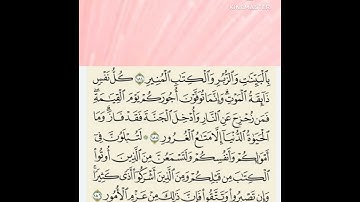 KINEMASTER
بِالْبَيِّنَٰتِ وَالزُّبُرِ وَالْكِتَٰبِ الْمُنِيرِ ١٨٤ كُلُّ نَفْسٍ
ذَآئِقَةُ الْمَوْتِ وَإِنَّمَا تُوَفَّوْنَ أُجُورَكُمْ يَوْمَ الْقِيَٰمَةِ
فَمَن زُحْزِحَ عَنِ النَّارِ وَأُدْخِلَ الْجَنَّةَ فَقَدْ فَازَ وَمَا
الْحَيَوٰةُ الدُّنْيَآ إِلَّا مَتَٰعُ الْغُرُورِ ١٨٥ لَتُبْلَوُنَّ فِىٓ
أَمْوَٰلِكُمْ وَأَنفُسِكُمْ وَلَتَسْمَعُنَّ مِنَ الَّذِينَ أُوتُوا۟
الْكِتَٰبَ مِن قَبْلِكُمْ وَمِنَ الَّذِينَ أَشْرَكُوٓا۟ أَذًى كَثِيرًا
وَإِن تَصْبِرُوا۟ وَتَتَّقُوا۟ فَإِنَّ ذَٰلِكَ مِنْ عَزْمِ الْأُمُورِ ١٨٦